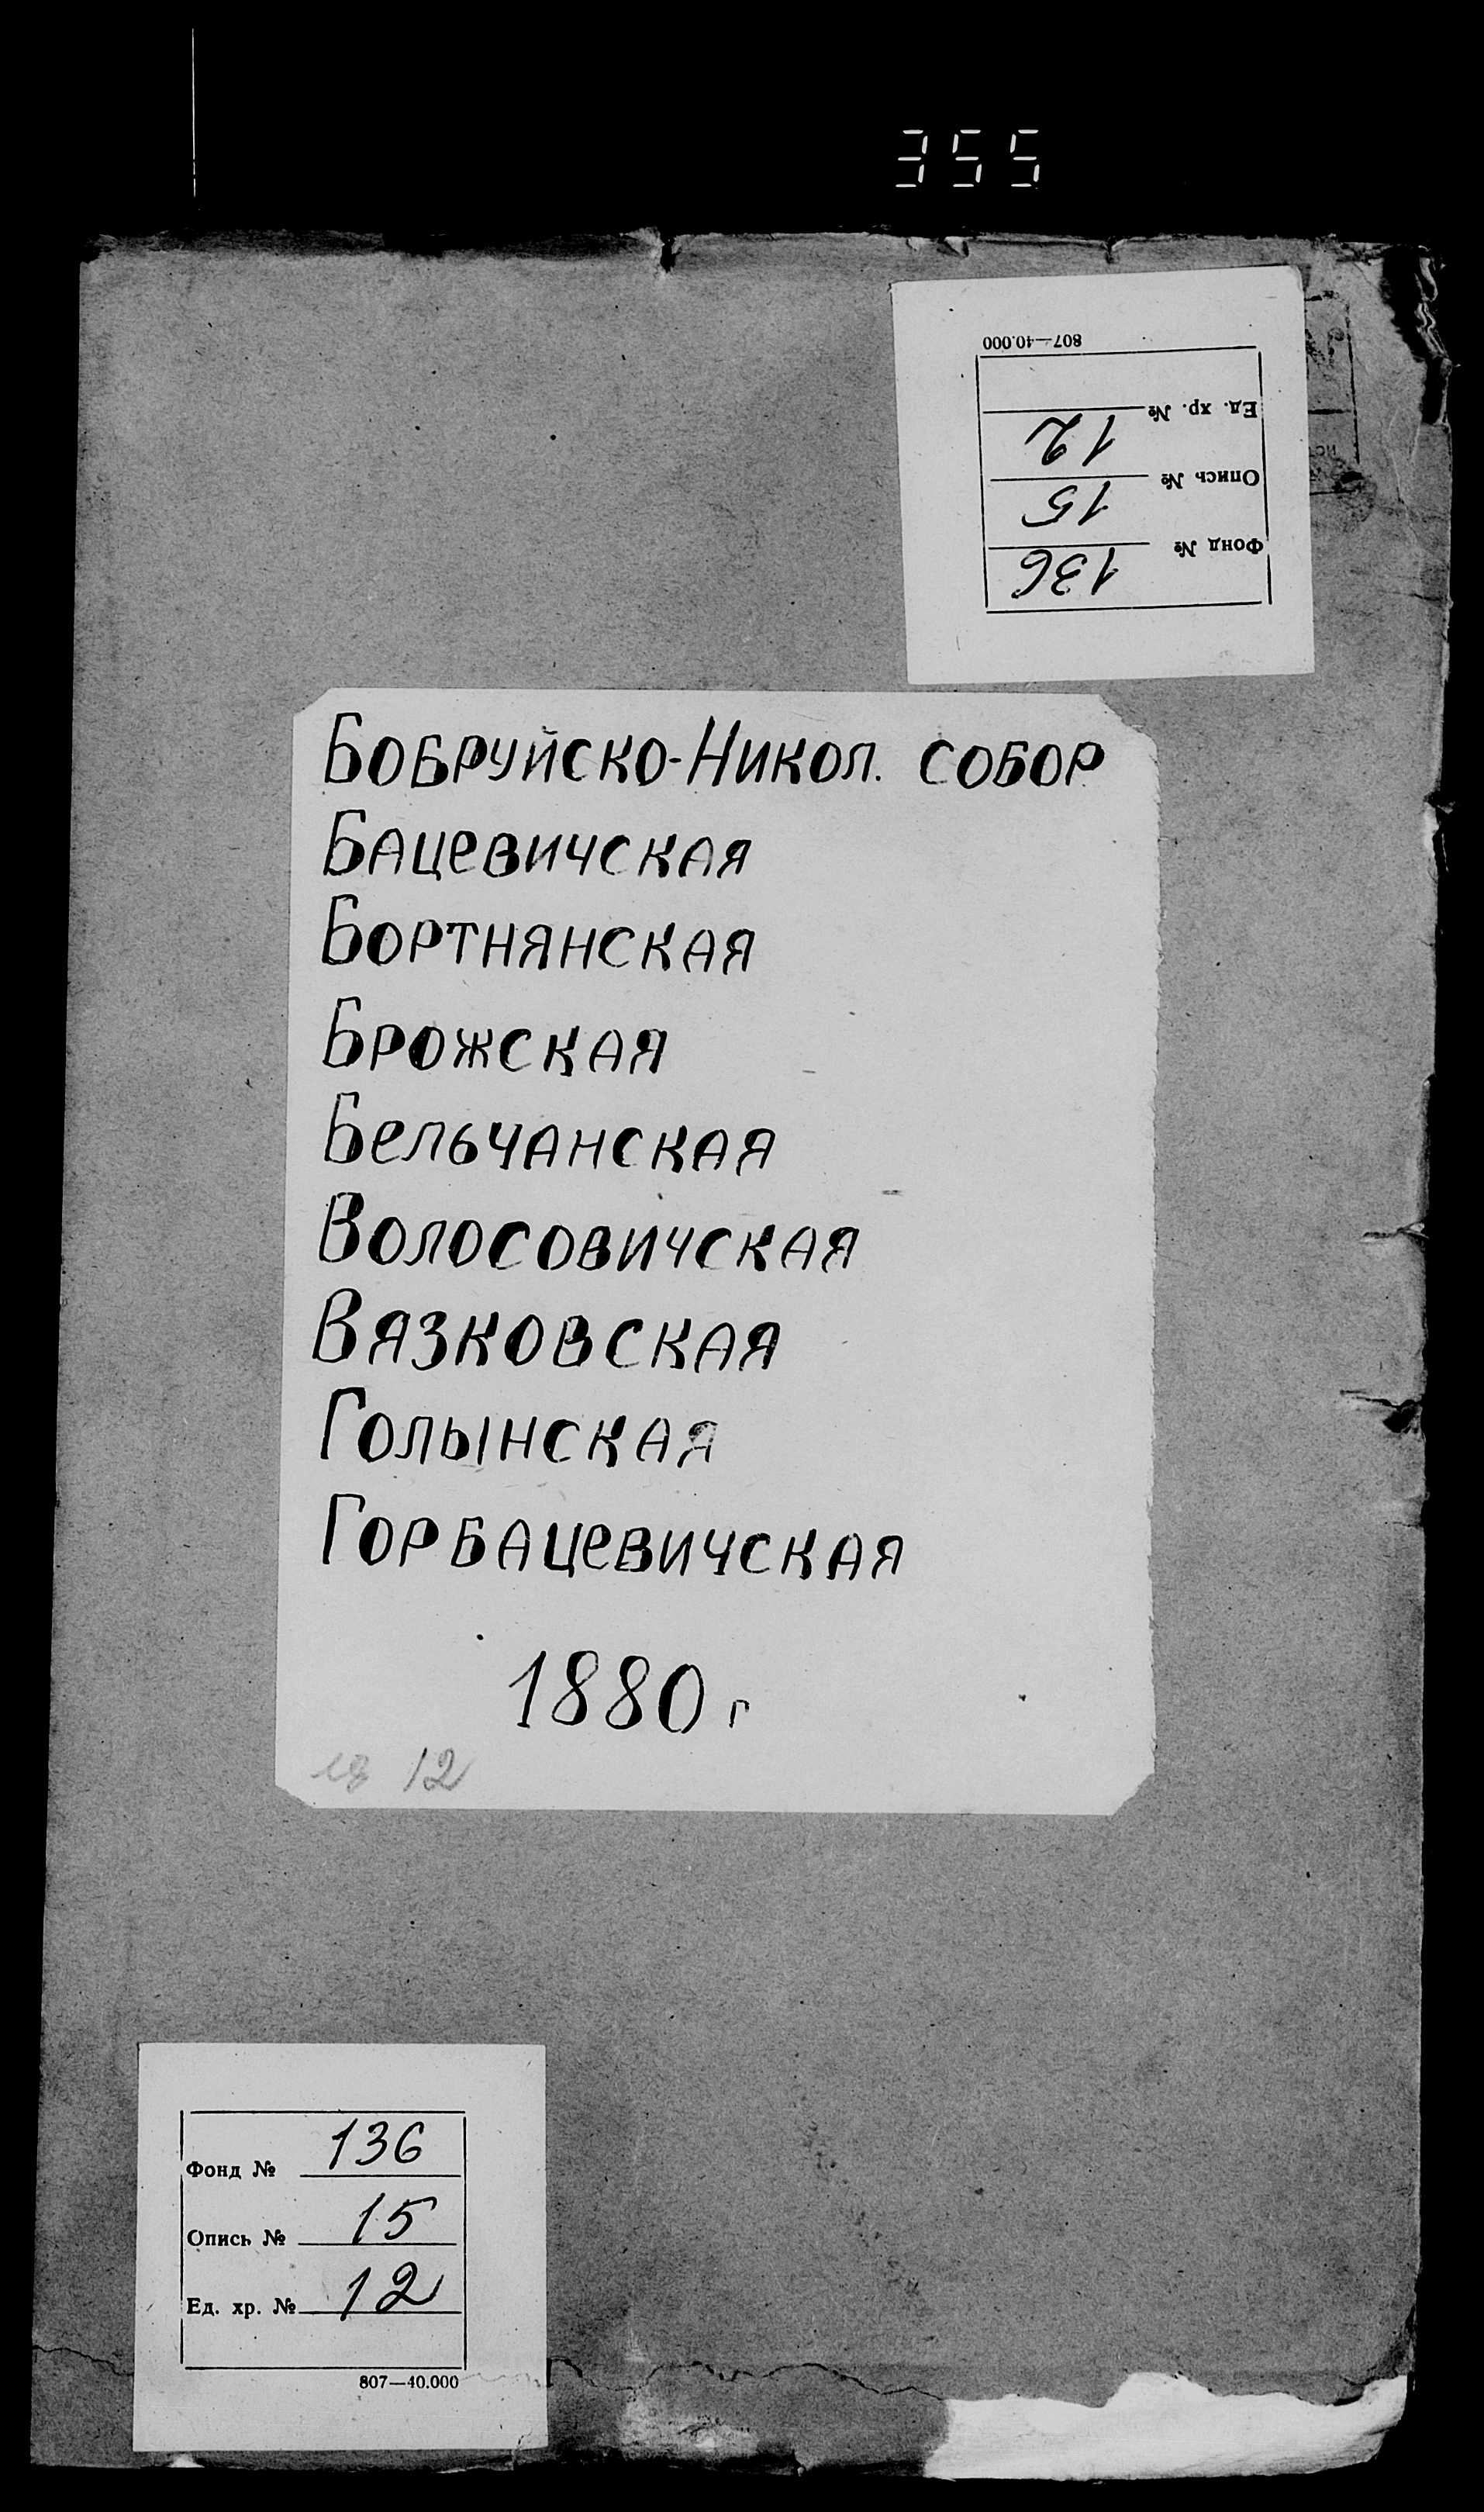 355
807—40.000
Ед. хр. № 12
Опись № 15
Фонд № 136
Бобруйско-Никол. собор
Бацевичская
Бортнянская
Брожская
Бельчанская
Волосовичская
Вязковская
Голынская
Горбацевичская
1880 г
18 12
Фонд № 136
Опись № 15
Ед. хр. № 12
807—40.000